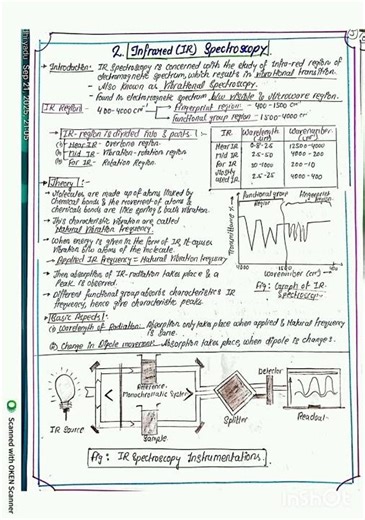 2. Infrared (IR) Spectroscopy
→ Introduction: IR Spectroscopy is concerned with the study of Infra-red region of
electromagnetic spectrum, which results in vibrational transition.
- Also known as Vibrational Spectroscopy.
- Found in electromagnetic spectrum b/w visible & microwave region.
IR Region - 400-4000 cm⁻¹
fingerprint region - 400-1500 cm⁻¹
functional group region - 1500-4000 cm⁻¹
→ IR-region is divided into 3 parts :-
Near IR - Overtone region
Mid IR - Vibration-rotation region
Far IR - Rotation Region
IR Wavelength Wavenumber
Near IR 0.8-2.5 12500-4000
Mid IR 2.5-50 4000-200
Far IR 50-1000 200-10
Mostly used IR 2.5-25 4000-400
→ Theory:
→ Molecules are made up of atoms linked by
chemical bonds & the movement of atoms &
chemicals bonds are like spring & balls vibration.
→ This characteristic vibration are called
Natural vibration frequency.
→ When energy is given in the form of IR it causes
vibration b/w atoms of the molecule.
→ Applied IR frequency = Natural Vibration frequency
→ Then absorption of IR-radiation takes place & a
Peak is observed.
→ Different functional group absorb characteristics IR
frequency, hence give characteristic peaks.
functional group Region
fingerprint Region
Transmittance %
4000 1500
Wavenumber (cm⁻¹)
Fig: Graph of IR-
Spectroscopy
→ Basic Aspects:
(1) Wavelength of Radiation: Absorption only take place when applied & Natural frequency
is same.
(2) Change in Dipole movement: Absorption takes place, when dipole is changes.
IR Source
Reference
Monochromatic System
Sample
Splitter
Detector
Readout
Fig: IR Spectroscopy Instrumentations.
Scanned with OKEN Scanner
InShot